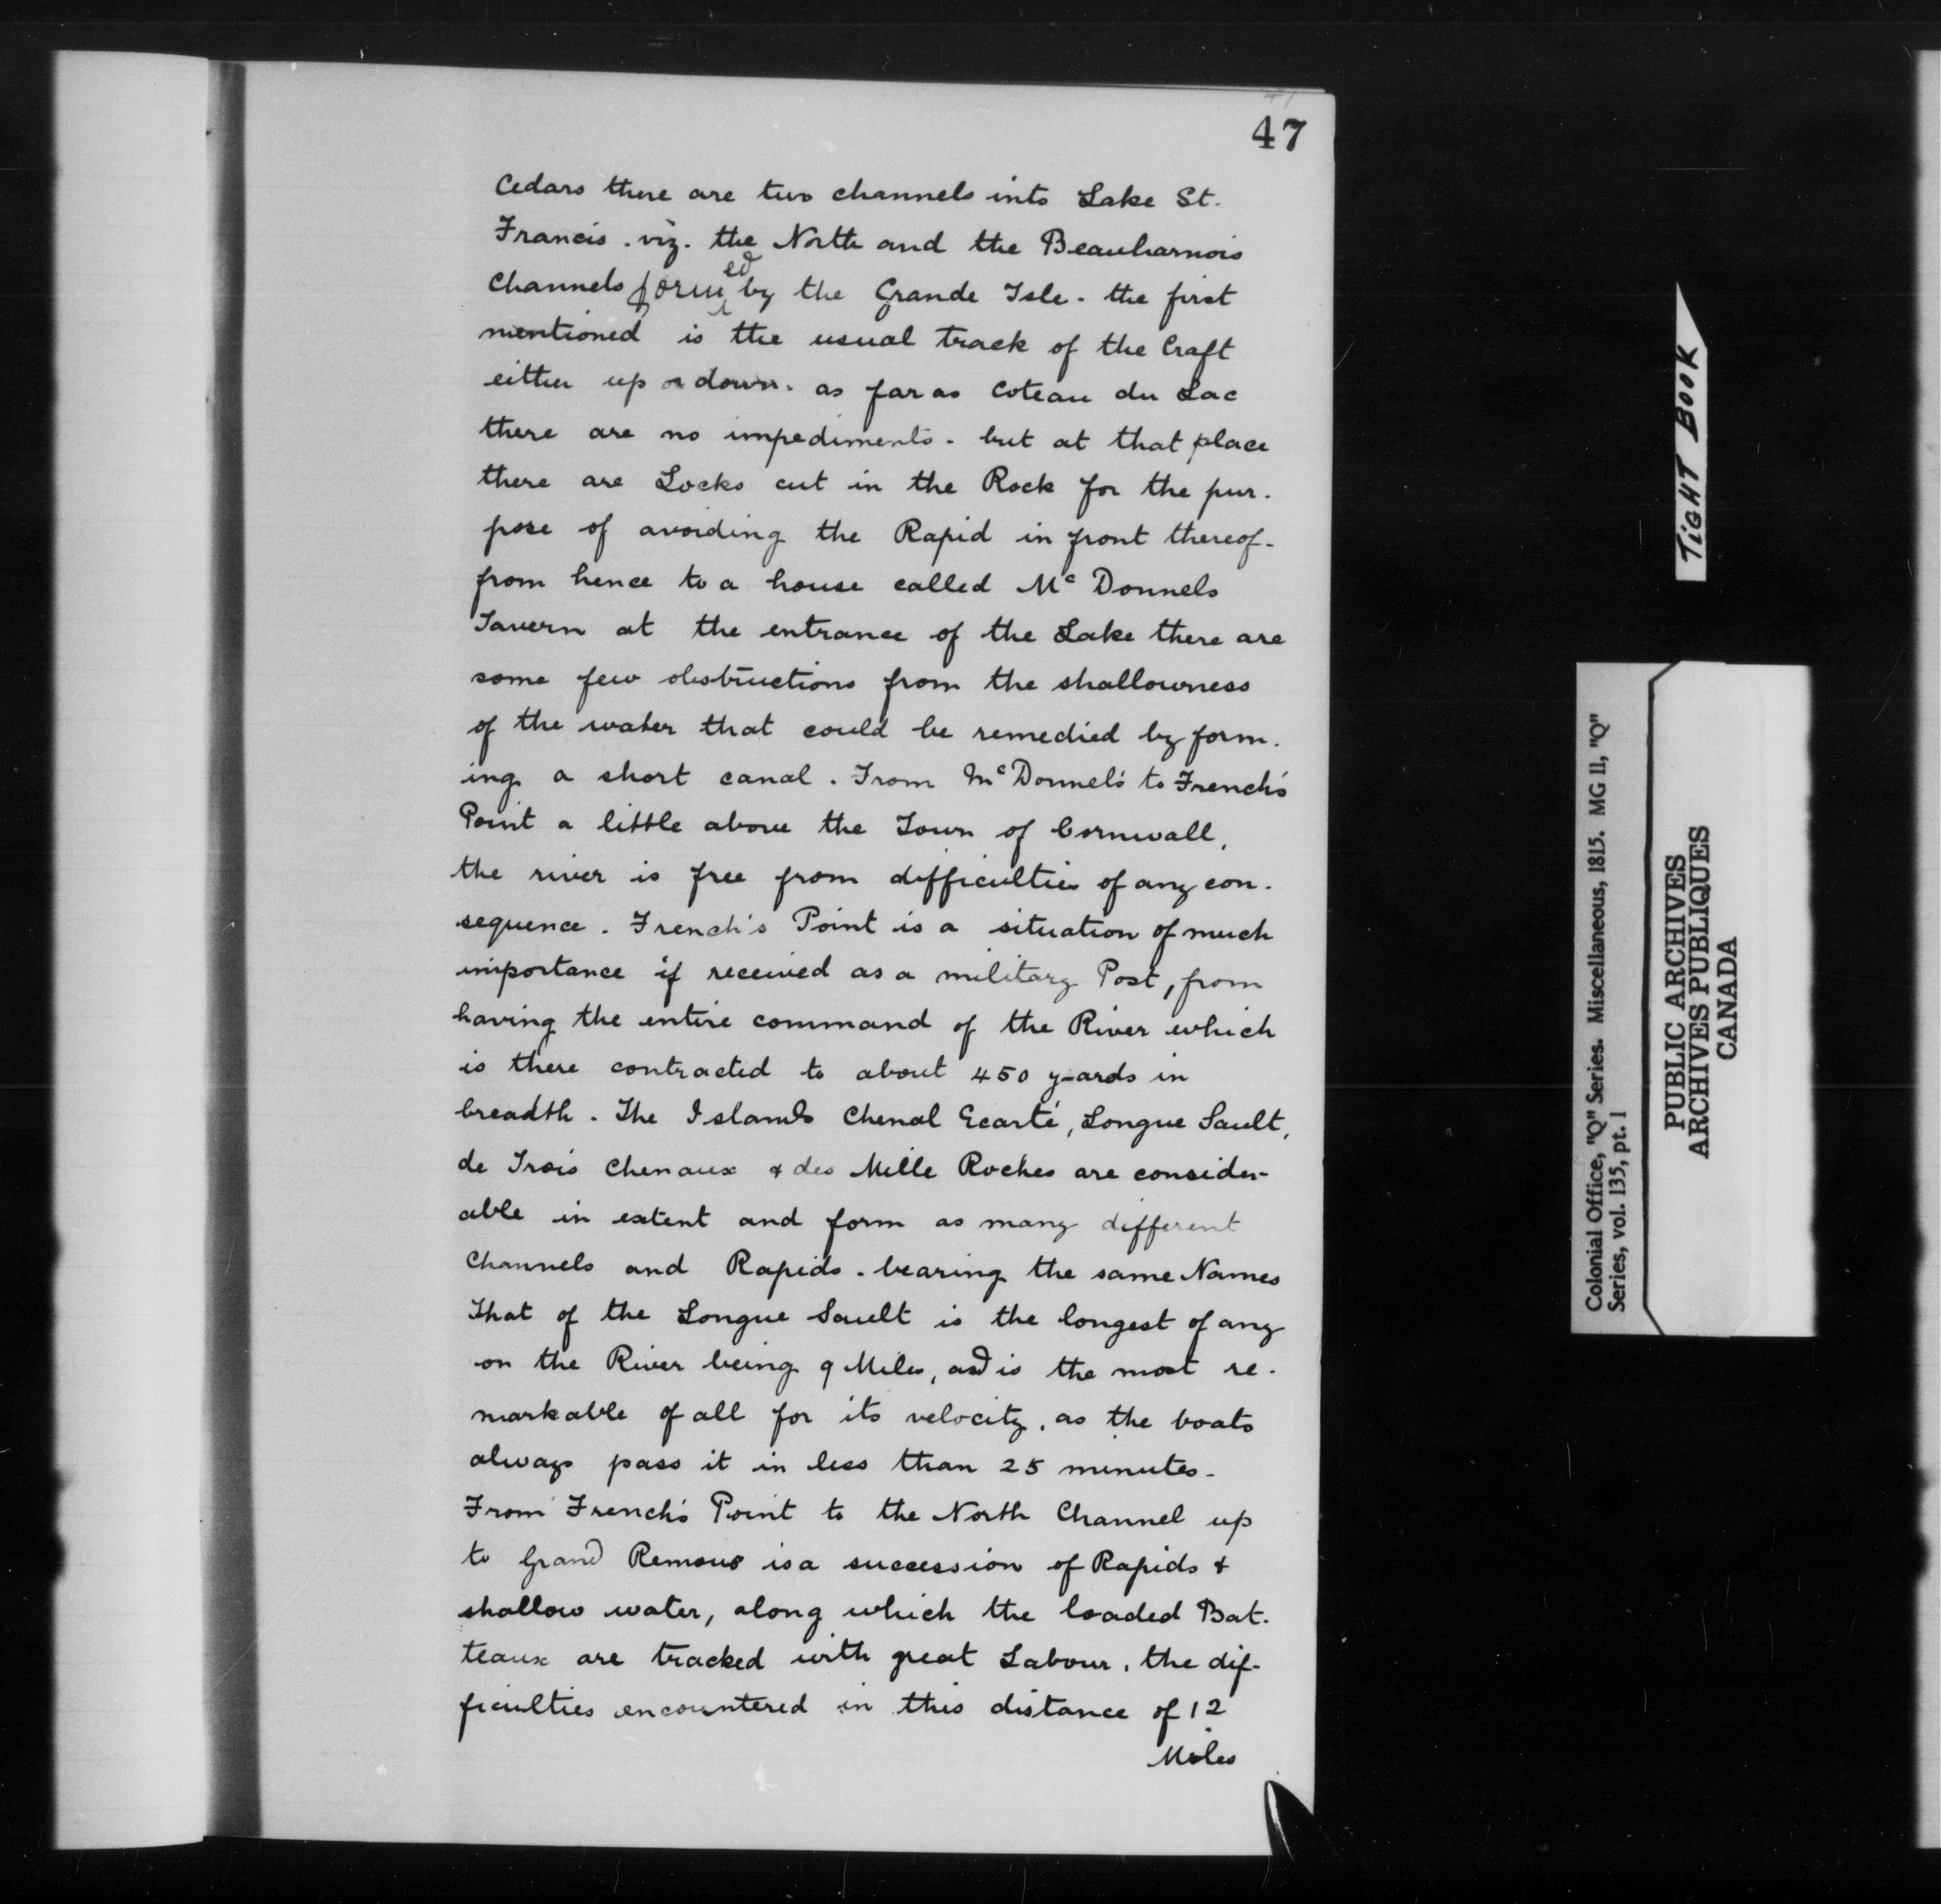 47
Cedars there are two channels into Lake St.
Francis . viz. the North and the Beauharnois
Channels formed by the Grande Isle - the first
mentioned is the usual track of the Craft
either up or down. as far as Coteau du Lac
there are no impediments - but at that place
there are Locks cut in the Rock for the pur-
pose of avoiding the Rapid in front thereof -
from hence to a house called Mc Donnels
Tavern at the entrance of the Lake there are
some few obstructions from the shallowness
of the water that could be remedied by form-
ing a short canal . From Mc Donnel's to French's
Point a little above the Town of Cornwall,
the river is free from difficulties of any con-
sequence . French's Point is a situation of much
importance if received as a military Post, from
having the entire command of the River which
is there contracted to about 450 yards in
breadth . The Islands Chenal Ecarté, Longue Sault,
de Trois Chenaux & des Mille Roches are consider-
able in extent and form as many different
Channels and Rapids - bearing the same Names
That of the Longue Sault is the longest of any
on the River being 9 Miles, and is the most re-
markable of all for its velocity, as the boats
always pass it in less than 25 minutes -
From French's Point to the North Channel up
to Grand Remous is a succession of Rapids &
shallow water, along which the loaded Bat-
teaux are tracked with great Labour, the dif-
ficulties encountered in this distance of 12
Miles
TIGHT BOOK
Colonial Office, "Q" Series. Miscellaneous, 1815. MG 11, "Q"
Series, vol. 135, pt. 1
PUBLIC ARCHIVES
ARCHIVES PUBLIQUES
CANADA